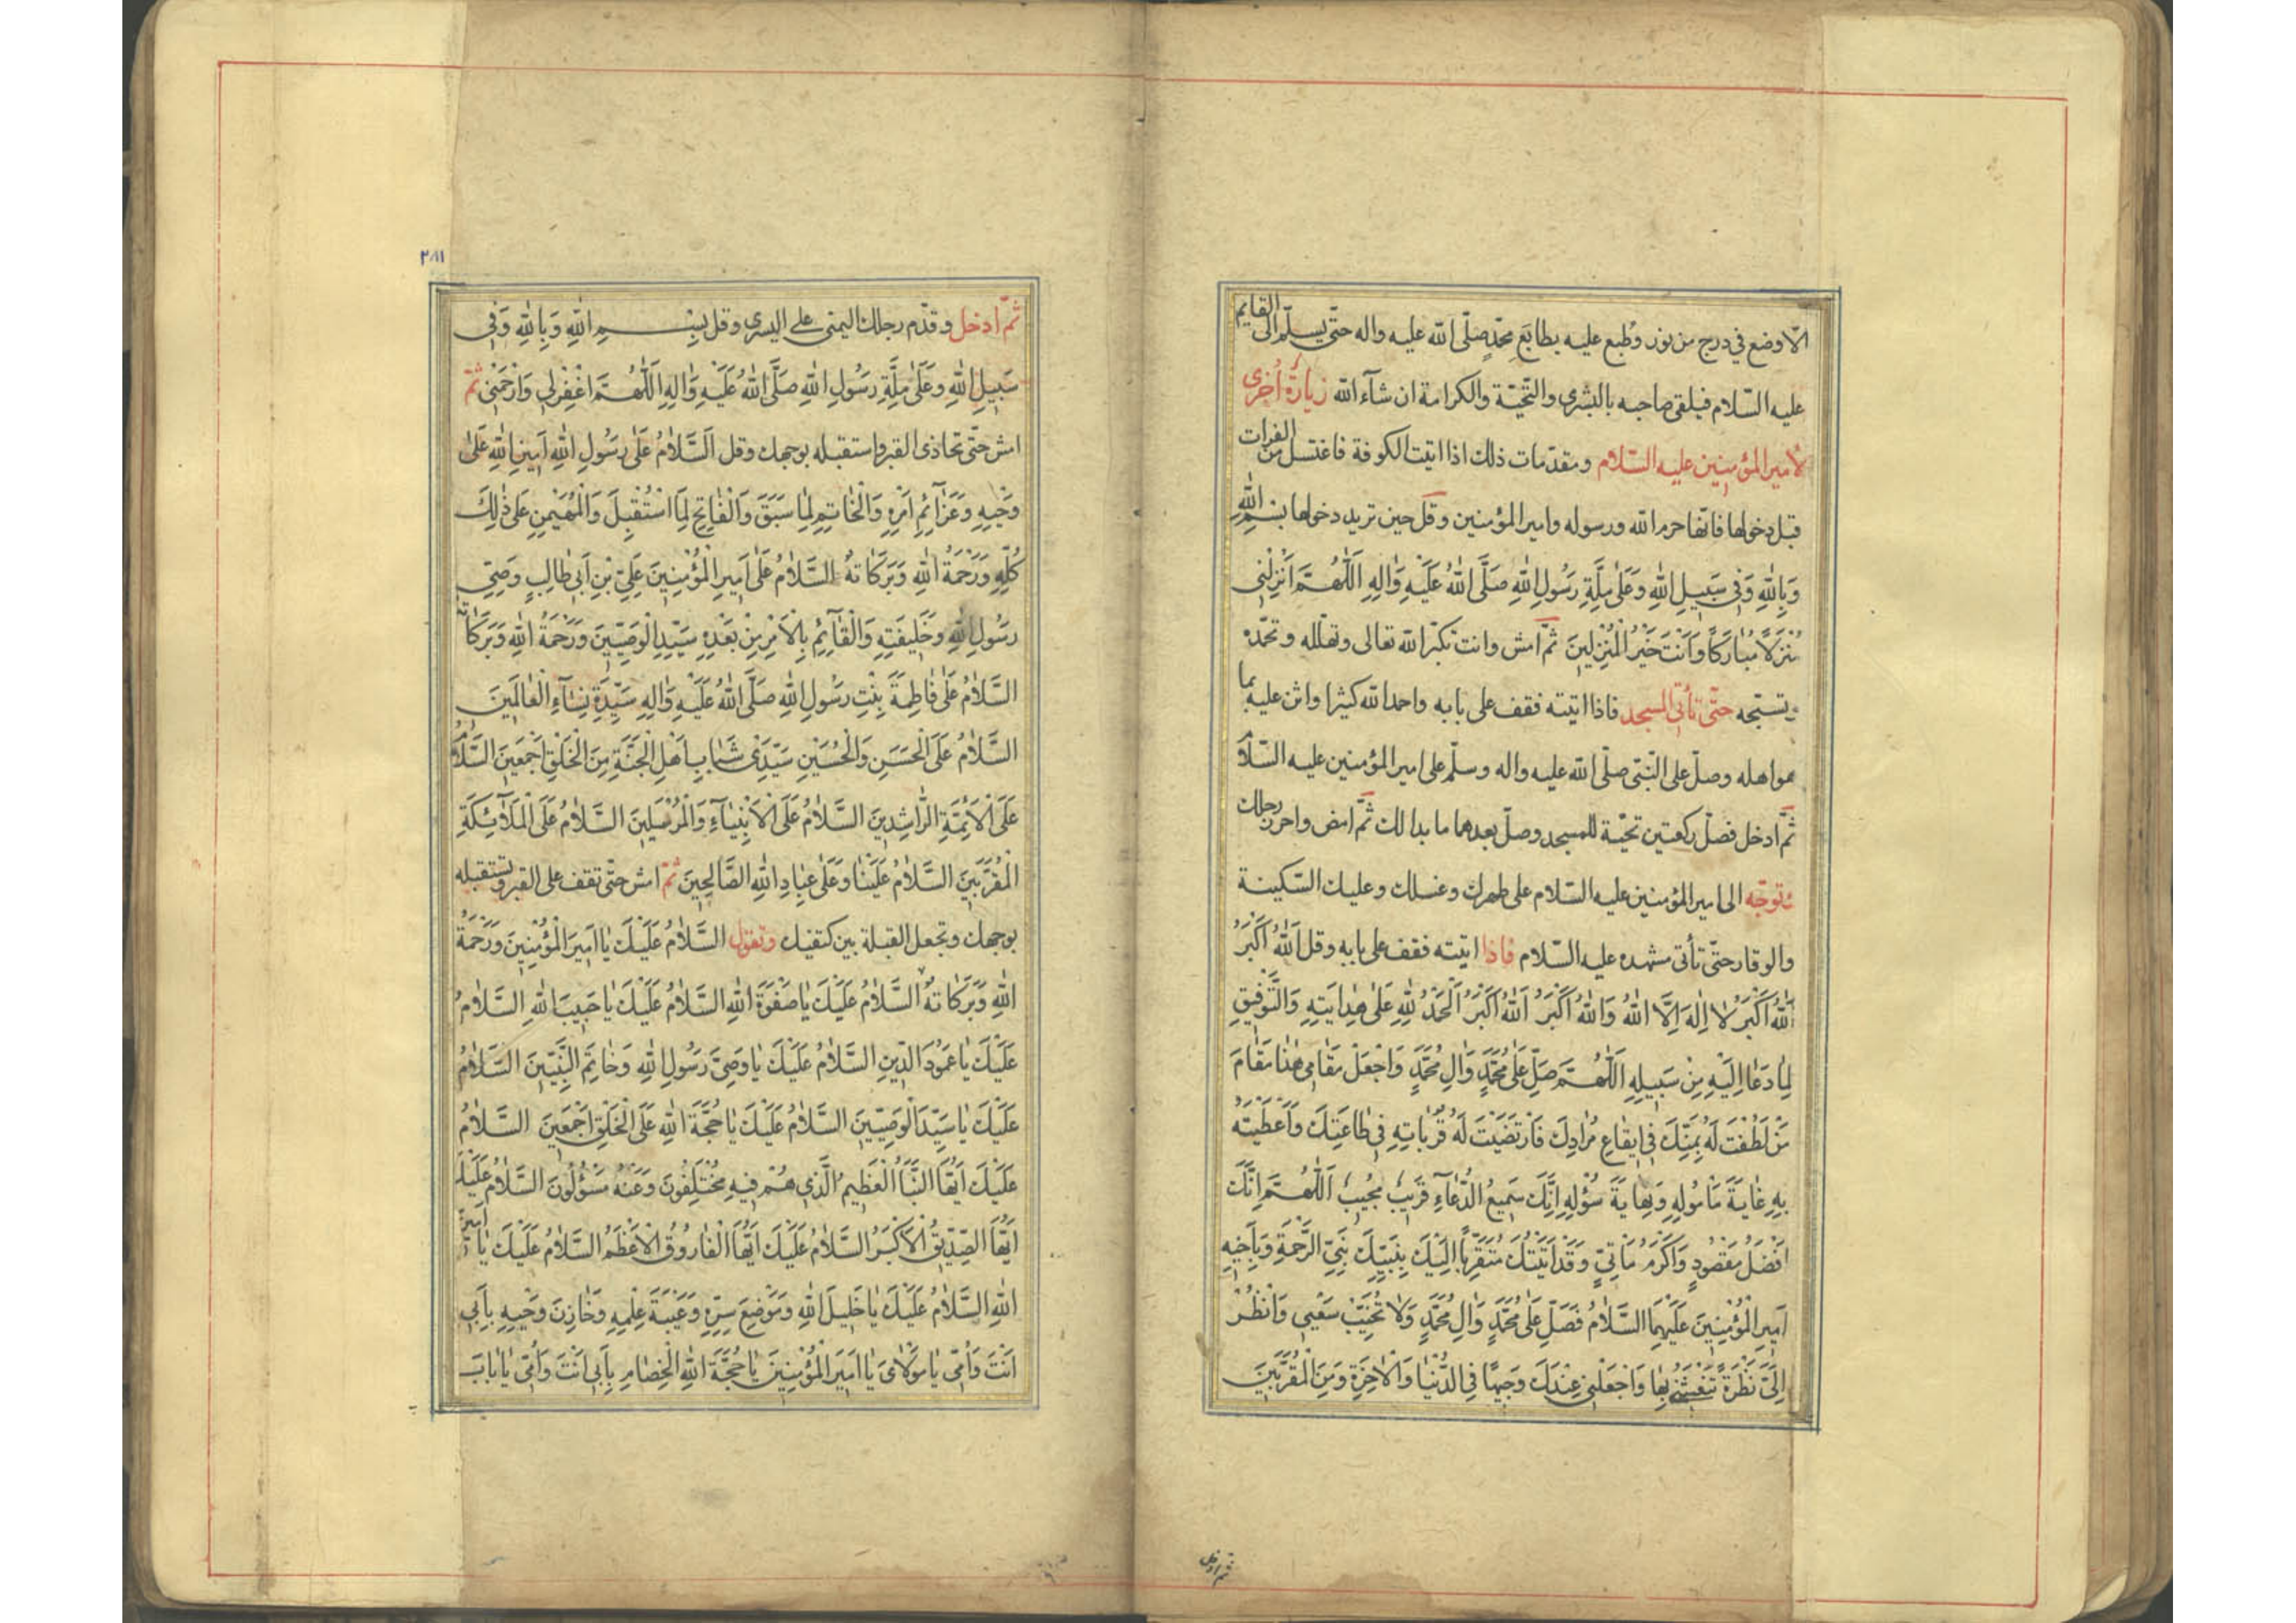 الّا وضع في درج من نور وطبع عليه بطابَعِ محمّدٍ صلّى الله عليه واله حتّى يسلّم الى القايم
عليه السّلام فيلقى صاحبه بالبشرى والتّحيّة والكرامة ان شآء الله زيارةٌ اُخرى
لأمير المؤمنين عليه السّلام ومقدّمات ذلك اذا اتيت الكوفة فاغتسل من الفرات
قبل دخولها فانّها حرم الله ورسوله وامير المؤمنين وقل حين تريد دخولها بِسْمِ اللهِ
وَبِاللهِ وَفي سَبيلِ اللهِ وَعَلىٰ مِلَّةِ رَسُولِ اللهِ صَلَّى اللهُ عَلَيْهِ وَاٰلِهِ اَللّٰهُمَّ اَنْزِلْني
مُنْزَلًا مُبارَكًا وَاَنْتَ خَيْرُ الْمُنْزِلينَ ثمّ امش وانت تكبّر الله تعالى وتهلّله وتحمّده
وتسبّحه حتّى تأتي المسجد فاذا اتيته فقف على بابه واحمد الله كثيرا واثن عليه بما
هو اهله وصلّ على النّبّي صلّى الله عليه واله وسلّم على امير المؤمنين عليه السّلام
ثمّ ادخل فصلّ ركعتين تحيّة للمسجد وصلّ بعدهما ما بدا لك ثمّ امض واحرز رحلك
وتوجّه الى امير المؤمنين عليه السّلام على طهرك وغسلك وعليك السّكينة
والوقار حتّى تأتي مشهده عليه السّلام فاذا اتيته فقف على بابه وقل اَللهُ اَكْبَرُ
اَللهُ اَكْبَرُ لا اِلٰهَ اِلَّا اللهُ وَاللهُ اَكْبَرُ اَللهُ اَكْبَرُ اَلْحَمْدُ لِلّٰهِ عَلىٰ هِدايَتِهِ وَالتَّوْفيقِ
لِما دَعا اِلَيْهِ مِنْ سَبيلِهِ اَللّٰهُمَّ صَلِّ عَلىٰ مُحَمَّدٍ وَاٰلِ مُحَمَّدٍ وَاجْعَلْ مَقامي هٰذا مَقامَ
مَنْ لَطُفْتَ لَهُ بِمَنِّكَ في ايقاعِ مُرادِكَ فَارْتَضَيْتَ لَهُ قُرُباتِهِ في طاعَتِكَ وَاَعْطَيْتَهُ
بِهِ غايَةَ مَأمُولِهِ وَنِهايَةَ سُؤْلِهِ اِنَّكَ سَميعُ الدُّعآءِ قَريبٌ مُجيبٌ اَللّٰهُمَّ اِنَّكَ
اَفْضَلُ مَقْصُودٍ وَاَكْرَمُ مَاْتِيٍّ وَقَدْ اَتَيْتُكَ مُتَقَرِّبًا اِلَيْكَ بِنَبِيِّكَ نَبِيِّ الرَّحْمَةِ وَبِاَخيهِ
اَميرِ الْمُؤْمِنينَ عَلَيْهِمَا السَّلامُ فَصَلِّ عَلىٰ مُحَمَّدٍ وَاٰلِ مُحَمَّدٍ وَلا تُخَيِّبْ سَعْيي وَانْظُرْ
اِلَيَّ نَظْرَةً تَنْعَشُني بِها وَاجْعَلْني عِنْدَكَ وَجيهًا فِي الدُّنْيا وَالْاٰخِرَةِ وَمِنَ الْمُقَرَّبينَ
ثم ادخل
٢٨١
ثمّ ادخل وقدّم رجلك اليمنى على اليسرى وقل بِسْمِ اللهِ وَبِاللهِ وَفي
سَبيلِ اللهِ وَعَلىٰ مِلَّةِ رَسُولِ اللهِ صَلَّى اللهُ عَلَيْهِ وَاٰلِهِ اَللّٰهُمَّ اغْفِرْلي وَارْحَمْني ثمّ
امش حتّى تحاذى القبر واستقبله بوجهك وقل اَلسَّلامُ عَلىٰ رَسُولِ اللهِ اَمينِ اللهِ عَلىٰ
وَحْيِهِ وَعَزآئِمِ اَمْرِهِ وَالْخاتِمِ لِما سَبَقَ وَالْفاتِحِ لِمَا اسْتُقْبِلَ وَالْمُهَيْمِنِ عَلىٰ ذٰلِكَ
كُلِّهِ وَرَحْمَةُ اللهِ وَبَرَكاتُهُ السَّلامُ عَلىٰ اَميرِ الْمُؤْمِنينَ عَلِيِّ بْنِ اَبي طالِبٍ وَصِيِّ
رَسُولِ اللهِ وَخَليفَتِهِ وَالْقآئِمِ بِالْاَمْرِ مِنْ بَعْدِهِ سَيِّدِ الْوَصِيّينَ وَرَحْمَةُ اللهِ وَبَرَكاتُهُ
السَّلامُ عَلىٰ فاطِمَةَ بِنْتِ رَسُولِ اللهِ صَلَّى اللهُ عَلَيْهِ وَاٰلِهِ سَيِّدَةِ نِسآءِ الْعالَمينَ
السَّلامُ عَلَى الْحَسَنِ وَالْحُسَيْنِ سَيِّدَيْ شَبابِ اَهْلِ الْجَنَّةِ مِنَ الْخَلْقِ اَجْمَعينَ السَّلامُ
عَلَى الْاَئِمَّةِ الرّاشِدينَ السَّلامُ عَلَى الْاَنْبِيآءِ وَالْمُرْسَلينَ السَّلامُ عَلَى الْمَلآئِكَةِ
الْمُقَرَّبينَ السَّلامُ عَلَيْنا وَعَلىٰ عِبادِ اللهِ الصّالِحينَ ثمّ امش حتّى تقف على القبر وتستقبله
بوجهك وتجعل القبلة بين كتفيك وتقول السَّلامُ عَلَيْكَ يا اَميرَ الْمُؤْمِنينَ وَرَحْمَةُ
اللهِ وَبَرَكاتُهُ السَّلامُ عَلَيْكَ يا صَفْوَةَ اللهِ السَّلامُ عَلَيْكَ يا حَبيبَ اللهِ السَّلامُ
عَلَيْكَ يا عَمُودَ الدّينِ السَّلامُ عَلَيْكَ يا وَصِيَّ رَسُولِ اللهِ وَخاتِمِ النَّبِيّينَ السَّلامُ
عَلَيْكَ يا سَيِّدَ الْوَصِيّينَ السَّلامُ عَلَيْكَ يا حُجَّةَ اللهِ عَلَى الْخَلْقِ اَجْمَعينَ السَّلامُ
عَلَيْكَ اَيُّهَا النَّبَأُ الْعَظيمُ الَّذي هُمْ فيهِ مُخْتَلِفُونَ وَعَنْهُ مَسْؤُلُونَ السَّلامُ عَلَيْكَ
اَيُّهَا الصِّدّيقُ الْاَكْبَرُ السَّلامُ عَلَيْكَ اَيُّهَا الْفارُوقُ الْاَعْظَمُ السَّلامُ عَلَيْكَ يا اَمينَ
اللهِ السَّلامُ عَلَيْكَ يا خَليلَ اللهِ وَمَوْضِعَ سِرِّهِ وَعَيْبَةَ عِلْمِهِ وَخازِنَ وَحْيِهِ بِاَبي
اَنْتَ وَاُمّي يا مَوْلايَ يا اَميرَ الْمُؤْمِنينَ يا حُجَّةَ اللهِ الْخِصامِ بِاَبي اَنْتَ وَاُمّي يا بابَ